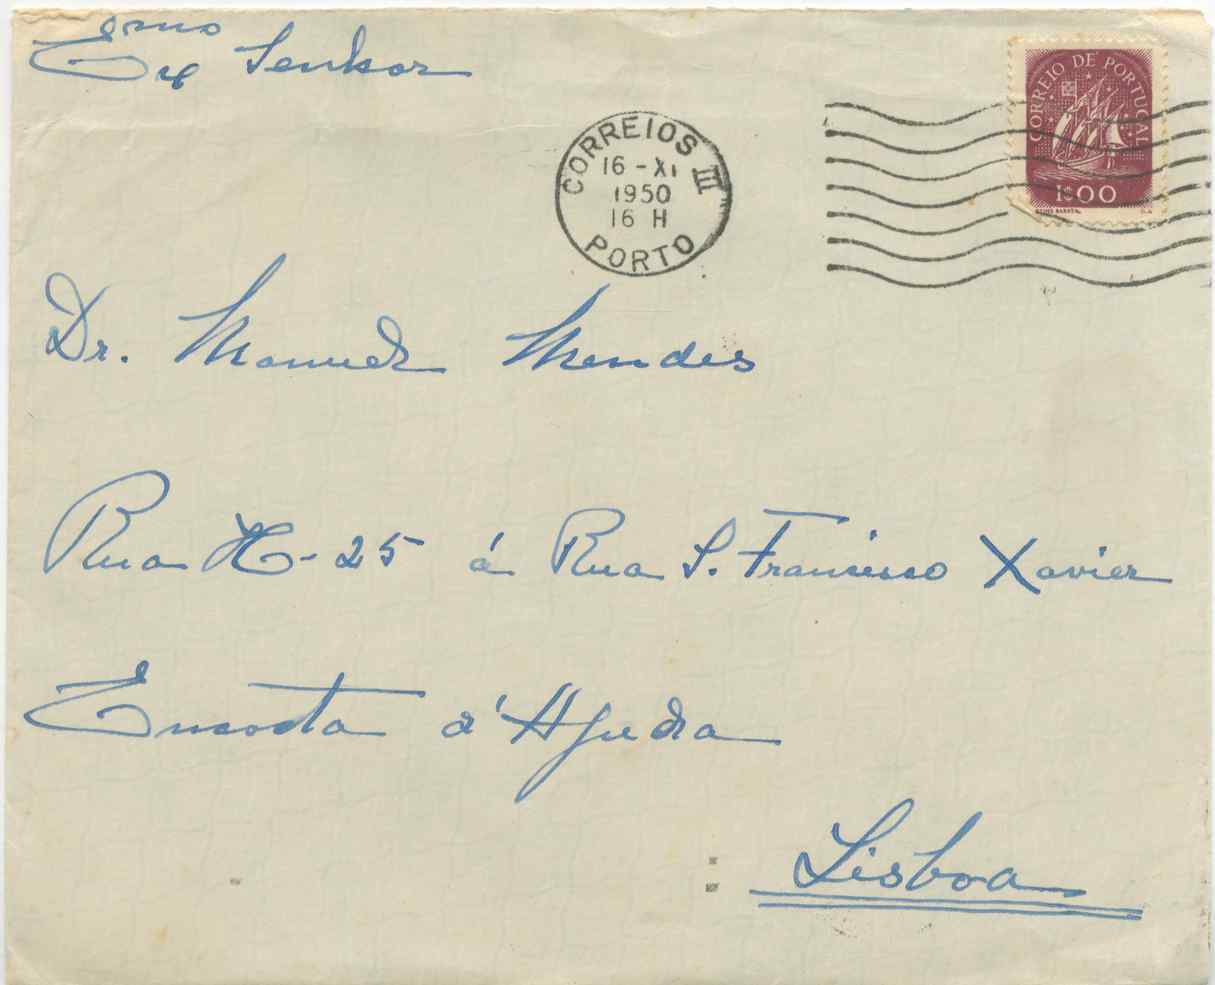 Exmo Senhor
CORREIO DE PORTUGAL
1$00
CORREIOS III
16 - XI
1950
16 H
PORTO
Dr. Manuel Mendes
Rua H-25 á Rua S. Francisco Xavier
Encosta d'Ajuda
Lisboa